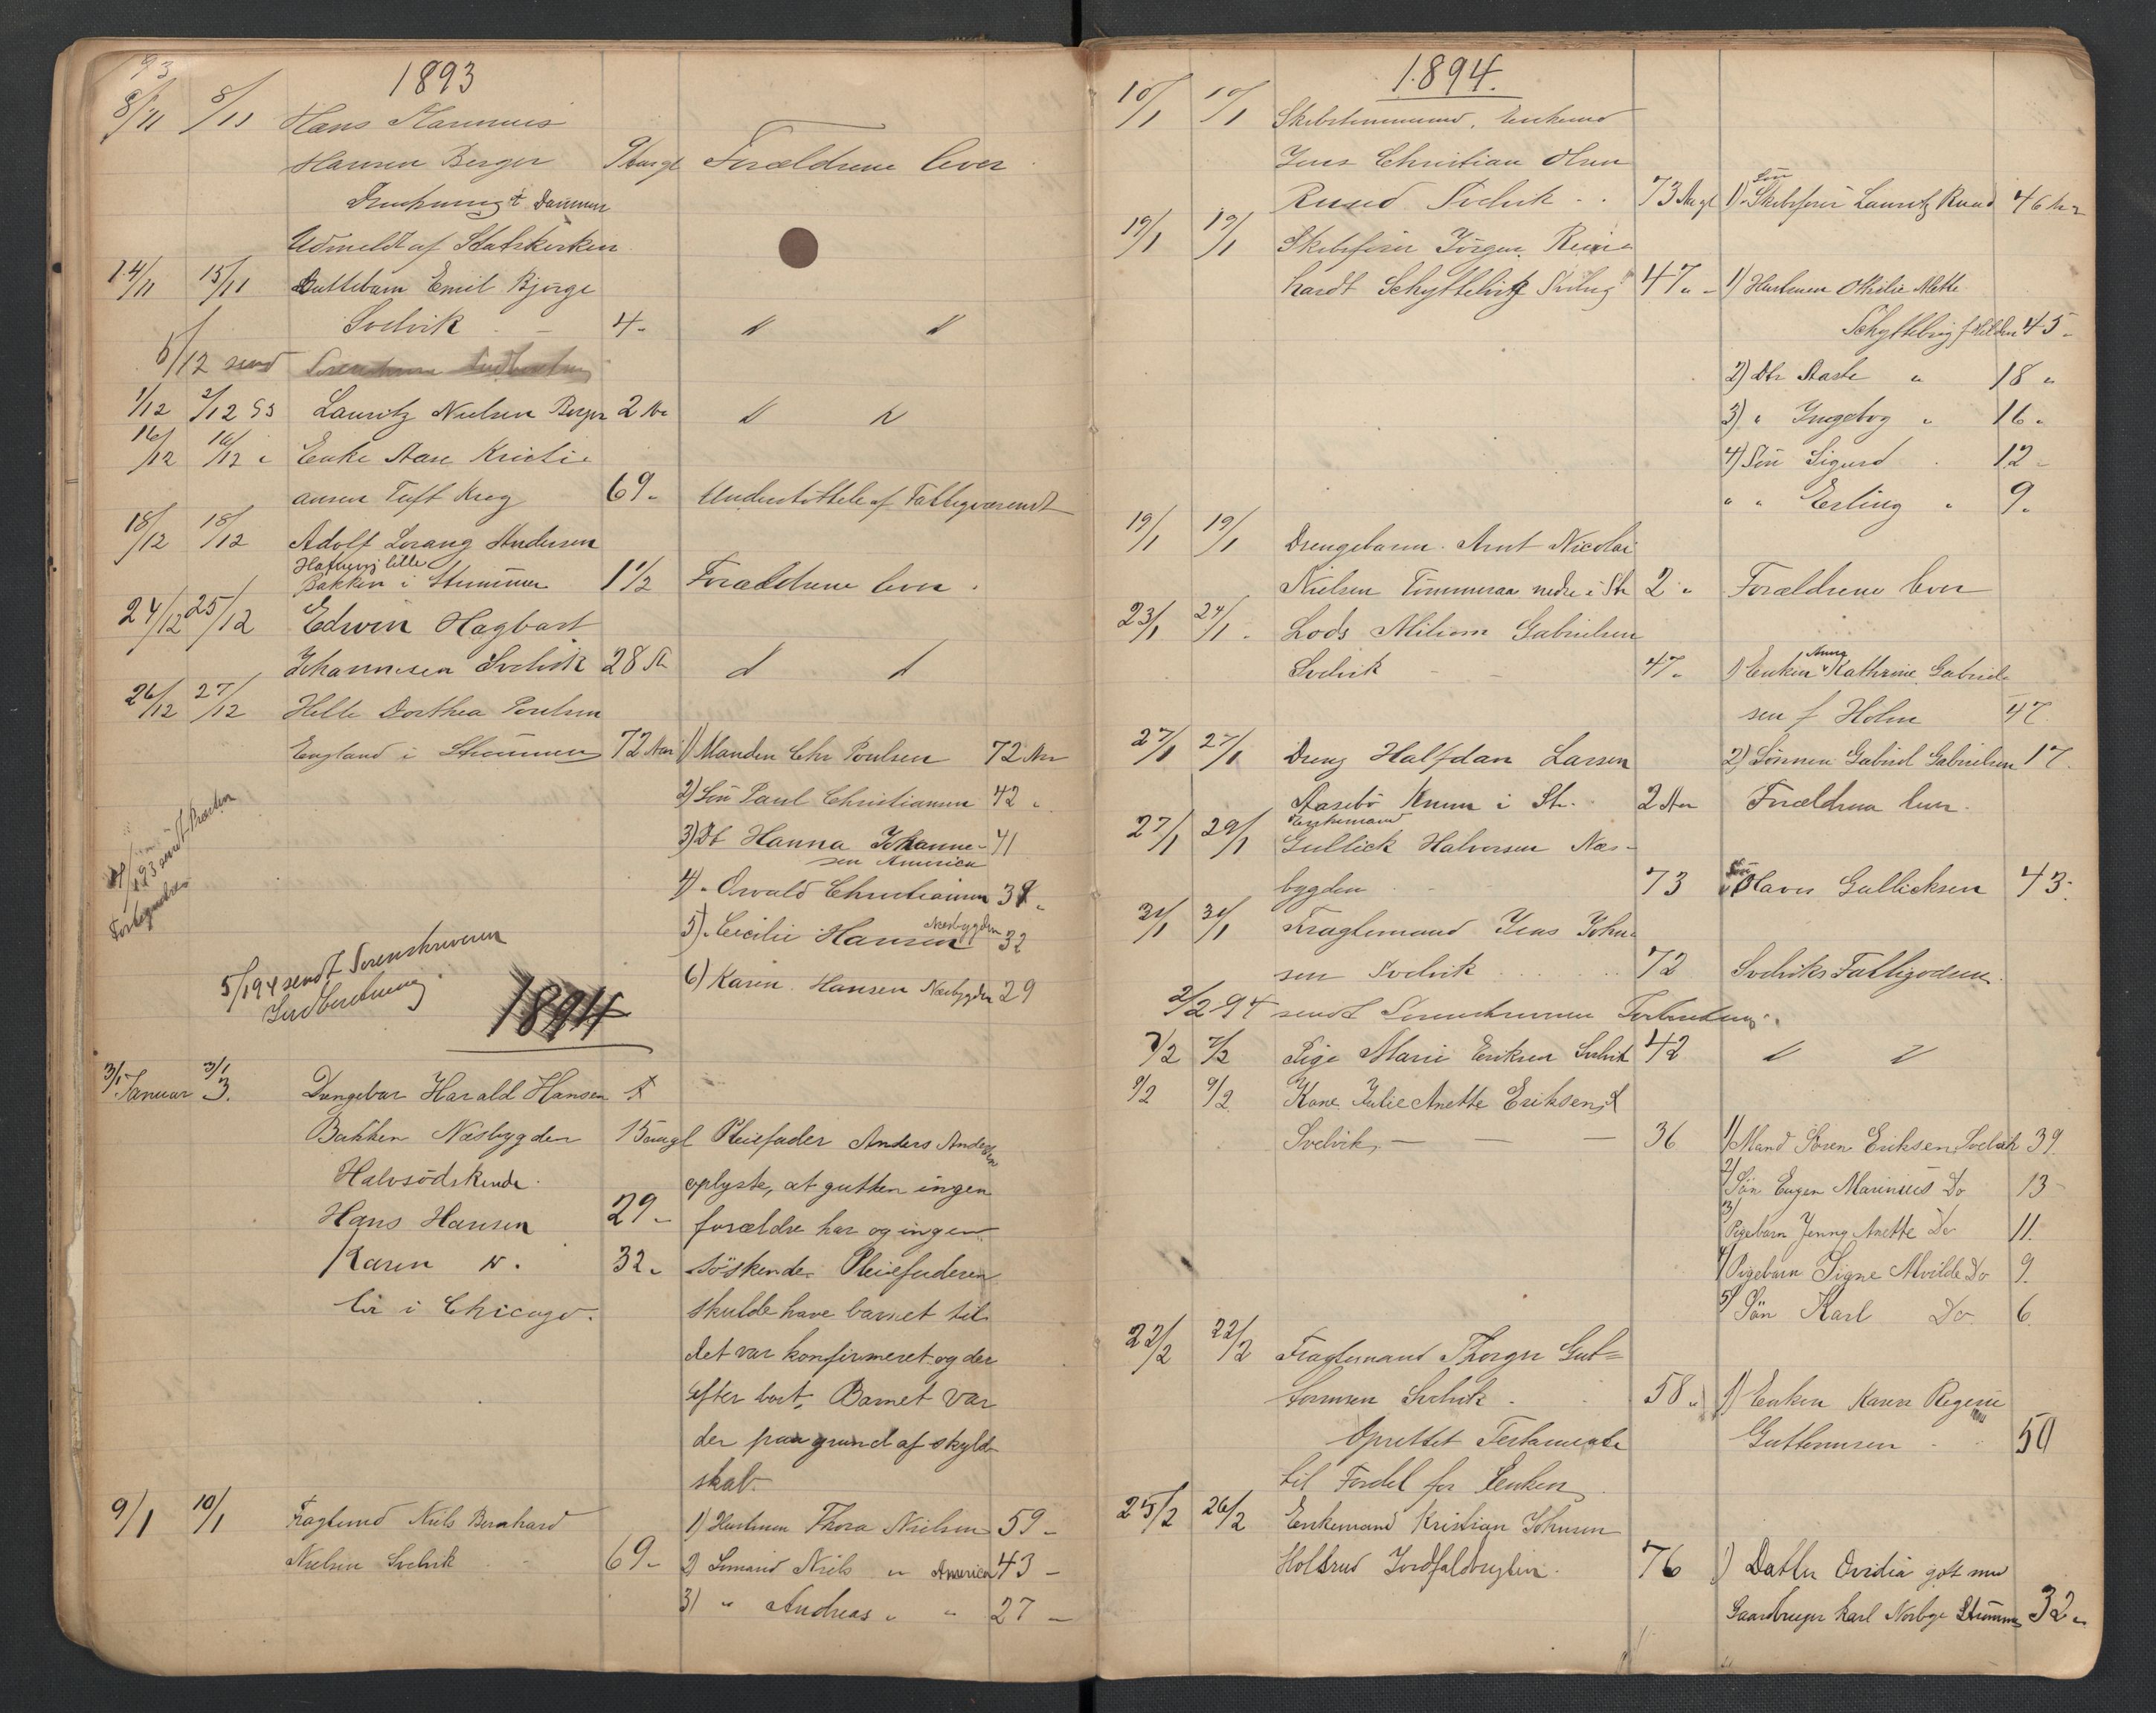 93
1893
8/11 8/11 Hans Marinius
Hansen Berger 9 Aar gl Forældrene lever
Drukning i Dammen
Udmeldt af Statskirken
14/11 15/11 Guttebarn Emil Bjørge
Svelvik - 4 " " "
5/12 send
1/12 2/12 93 Lauritz Nielsen Berger 2 Aar " "
16/12 16/12 Enke Aase Kristi=
ansen Tuft Krog 69 " Understöttet af Fattigvæsenet
18/12 18/12 Adolf Lorang Andersen
Hafnevig lille
Bakken i Strømmen 1 1/2 Forældrene lever.
24/12 25/12 Edwin Hagbart
Johannesen Svelvik 28 Aar " "
26/12 27/12 Helle Dorthea Poulsen
England i Strømmen 72 Aar 1) Manden Chr Poulsen 72 Aar
2) Søn Paul Christiansen 42 "
3) Dt Hanna Johanne- 41
sen America
4) " Osvald Christiansen
Nesbygden
5) " Cecilie Hansen 32
6) Karen Hansen Nesbygden 29
5/1 94 sendt Sorenskriveren
Indberetning
1894
3/1 3/1
Januar 3. Drengebar Harald Hansen
Bakken Nesbygden 15 aar gl Pleiefader Anders Andersen
Halvsödskende. oplyste, at gutten ingen
Hans Hansen 29 " forældre har og ingen
Karen " 32 " söskende. Pleiefaderen
bor i Chicago. skulde have barnet til
det var konfirmeret og der
efter bort. Barnet var
der paa grund af skyld
skab.
9/1 10/1 Fragtemd Nils Bernhard 1) Hustruen Thora Nielsen 59 "
Nielsen Svelvik 69 " 2) Sömand Niels " America 43 "
3) " Andreas " " 27 "
1894.
10/1 10/1 Skibstømmermd. Enkemd
Jens Christian Olsen
Ruud Svelvik 73 Aar gl 1) Søn Skibsfører Lauritz Ruud 46 Aar
19/1 19/1 Skibsfører Jörgen Rein=
hardt Schyttelvig Svelvig 47 " 1) Hustruen Othilie Mette
Schyttelvig f. Helden 45 "
2) Dtr Aasta " 18 "
3) " Ingeborg " 16 "
4) Søn Sigurd " 12 "
" " Erling " 9 "
19/1 19/1 Drengebarn Arnt Nicolai
Nielsen Tömmeraas nedre i Str 2 " Forældrene lever
23/1 24/1 Lods Gabrielsen
Svelvik - - 47 " 1) Enken Anna Kathrine Gabriel=
sen f Holm 47
27/1 27/1 Dreng Halfdan Larsen 2) Sønnen Gabriel Gabrielsen 17
Aasebö i Str. 2 Aar Forældrene lever.
27/1 29/1 Enkemand
Gullick Halvorsen Næs-
bygden 73 Søn Olaves Gullicksen 43.
31/1 31/1 Fragtemand Jens John=
sen Svelvik 72 Svelviks Fattigvæsen
2/2 94 sendt Sorenskriveren Fortegnelse.
7/2 7/2 Pige Marie Eriksen Svelvik 42 " "
9/2 9/2 Kone Julie Anette Eriksen,
Svelvik, - - - 36 1) Mand Søren Eriksen, Svelvik 39.
2) Søn Eugen Marinius Do 13
3) Pigebarn Jenny Anette Do 11.
4) Pigebarn Signe Alvilde Do 9.
5) Søn Karl Do 6.
22/2 22/2 Fragtemand Thorger Gut=
tormsen Svelvik - 58 " 1) Enken Karen Regine
Guttormsen 50
Oprettet Testamente
til Fordel for Enken
25/2 26/2 Enkemand Kristian Johnsen
Holtsrud 76 1) Datter Ovidia gift med
Gaardbruger Karl Norbye Strømm 32 "